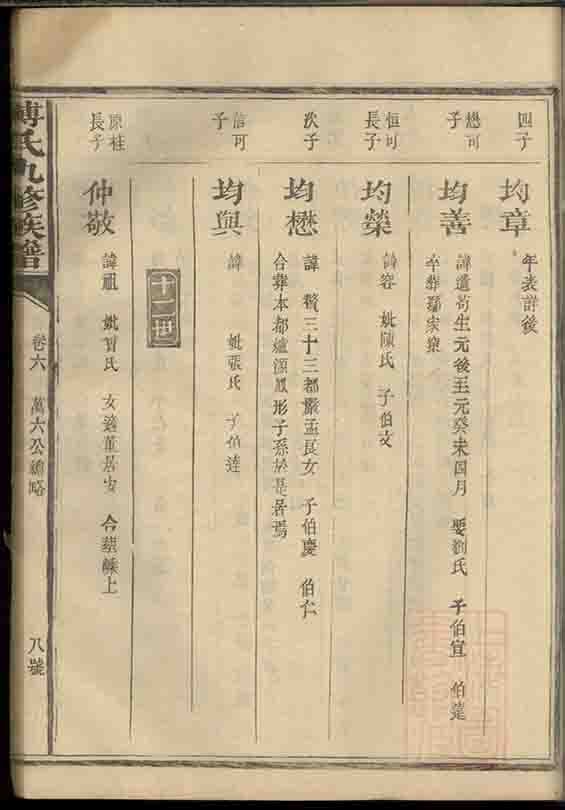 四子
均章
年表詳後
懋可
子
均善
諱遺苟生元後壬元癸未四月 娶劉氏 子伯宜 伯達
卒葬
恒可
長子
均榮
諱容 妣陳氏 子伯文
次子
均懋
諱 贅三十三都嚴孟長女 子伯慶 伯仁
合葬本都爐源鳳形子孫於是居焉
信可
子
均與
諱 妣張氏 子伯達
十二世
原桂
長子
仲敬
諱祖 妣賀氏 女適董居安 合葬上
傅氏九修族譜
卷六 萬六公總略
八號